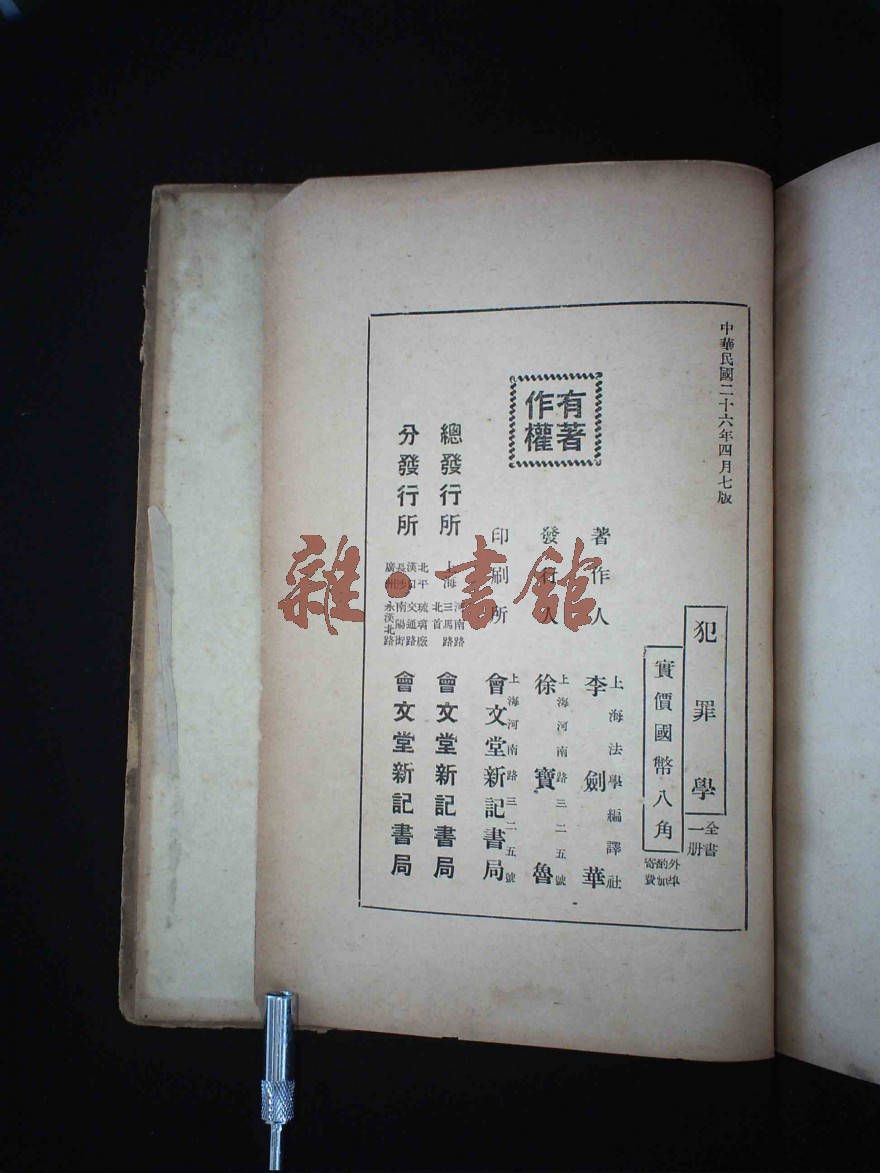 中華民國二十六年四月七版
犯罪學
全書
一册
實價國幣八角
外埠
酌加
寄費
有著
作權
著作人
上海法學編譯社
李劍華
發行人
上海河南路三二五號
徐寶魯
印刷所
上海河南路三二五號
會文堂新記書局
總發行所
上海
河南路
三馬路
北首
會文堂新記書局
分發行所
北平 琉璃廠
漢口 交通路
長沙 南陽街
廣州 永漢北路
會文堂新記書局
雜·書館